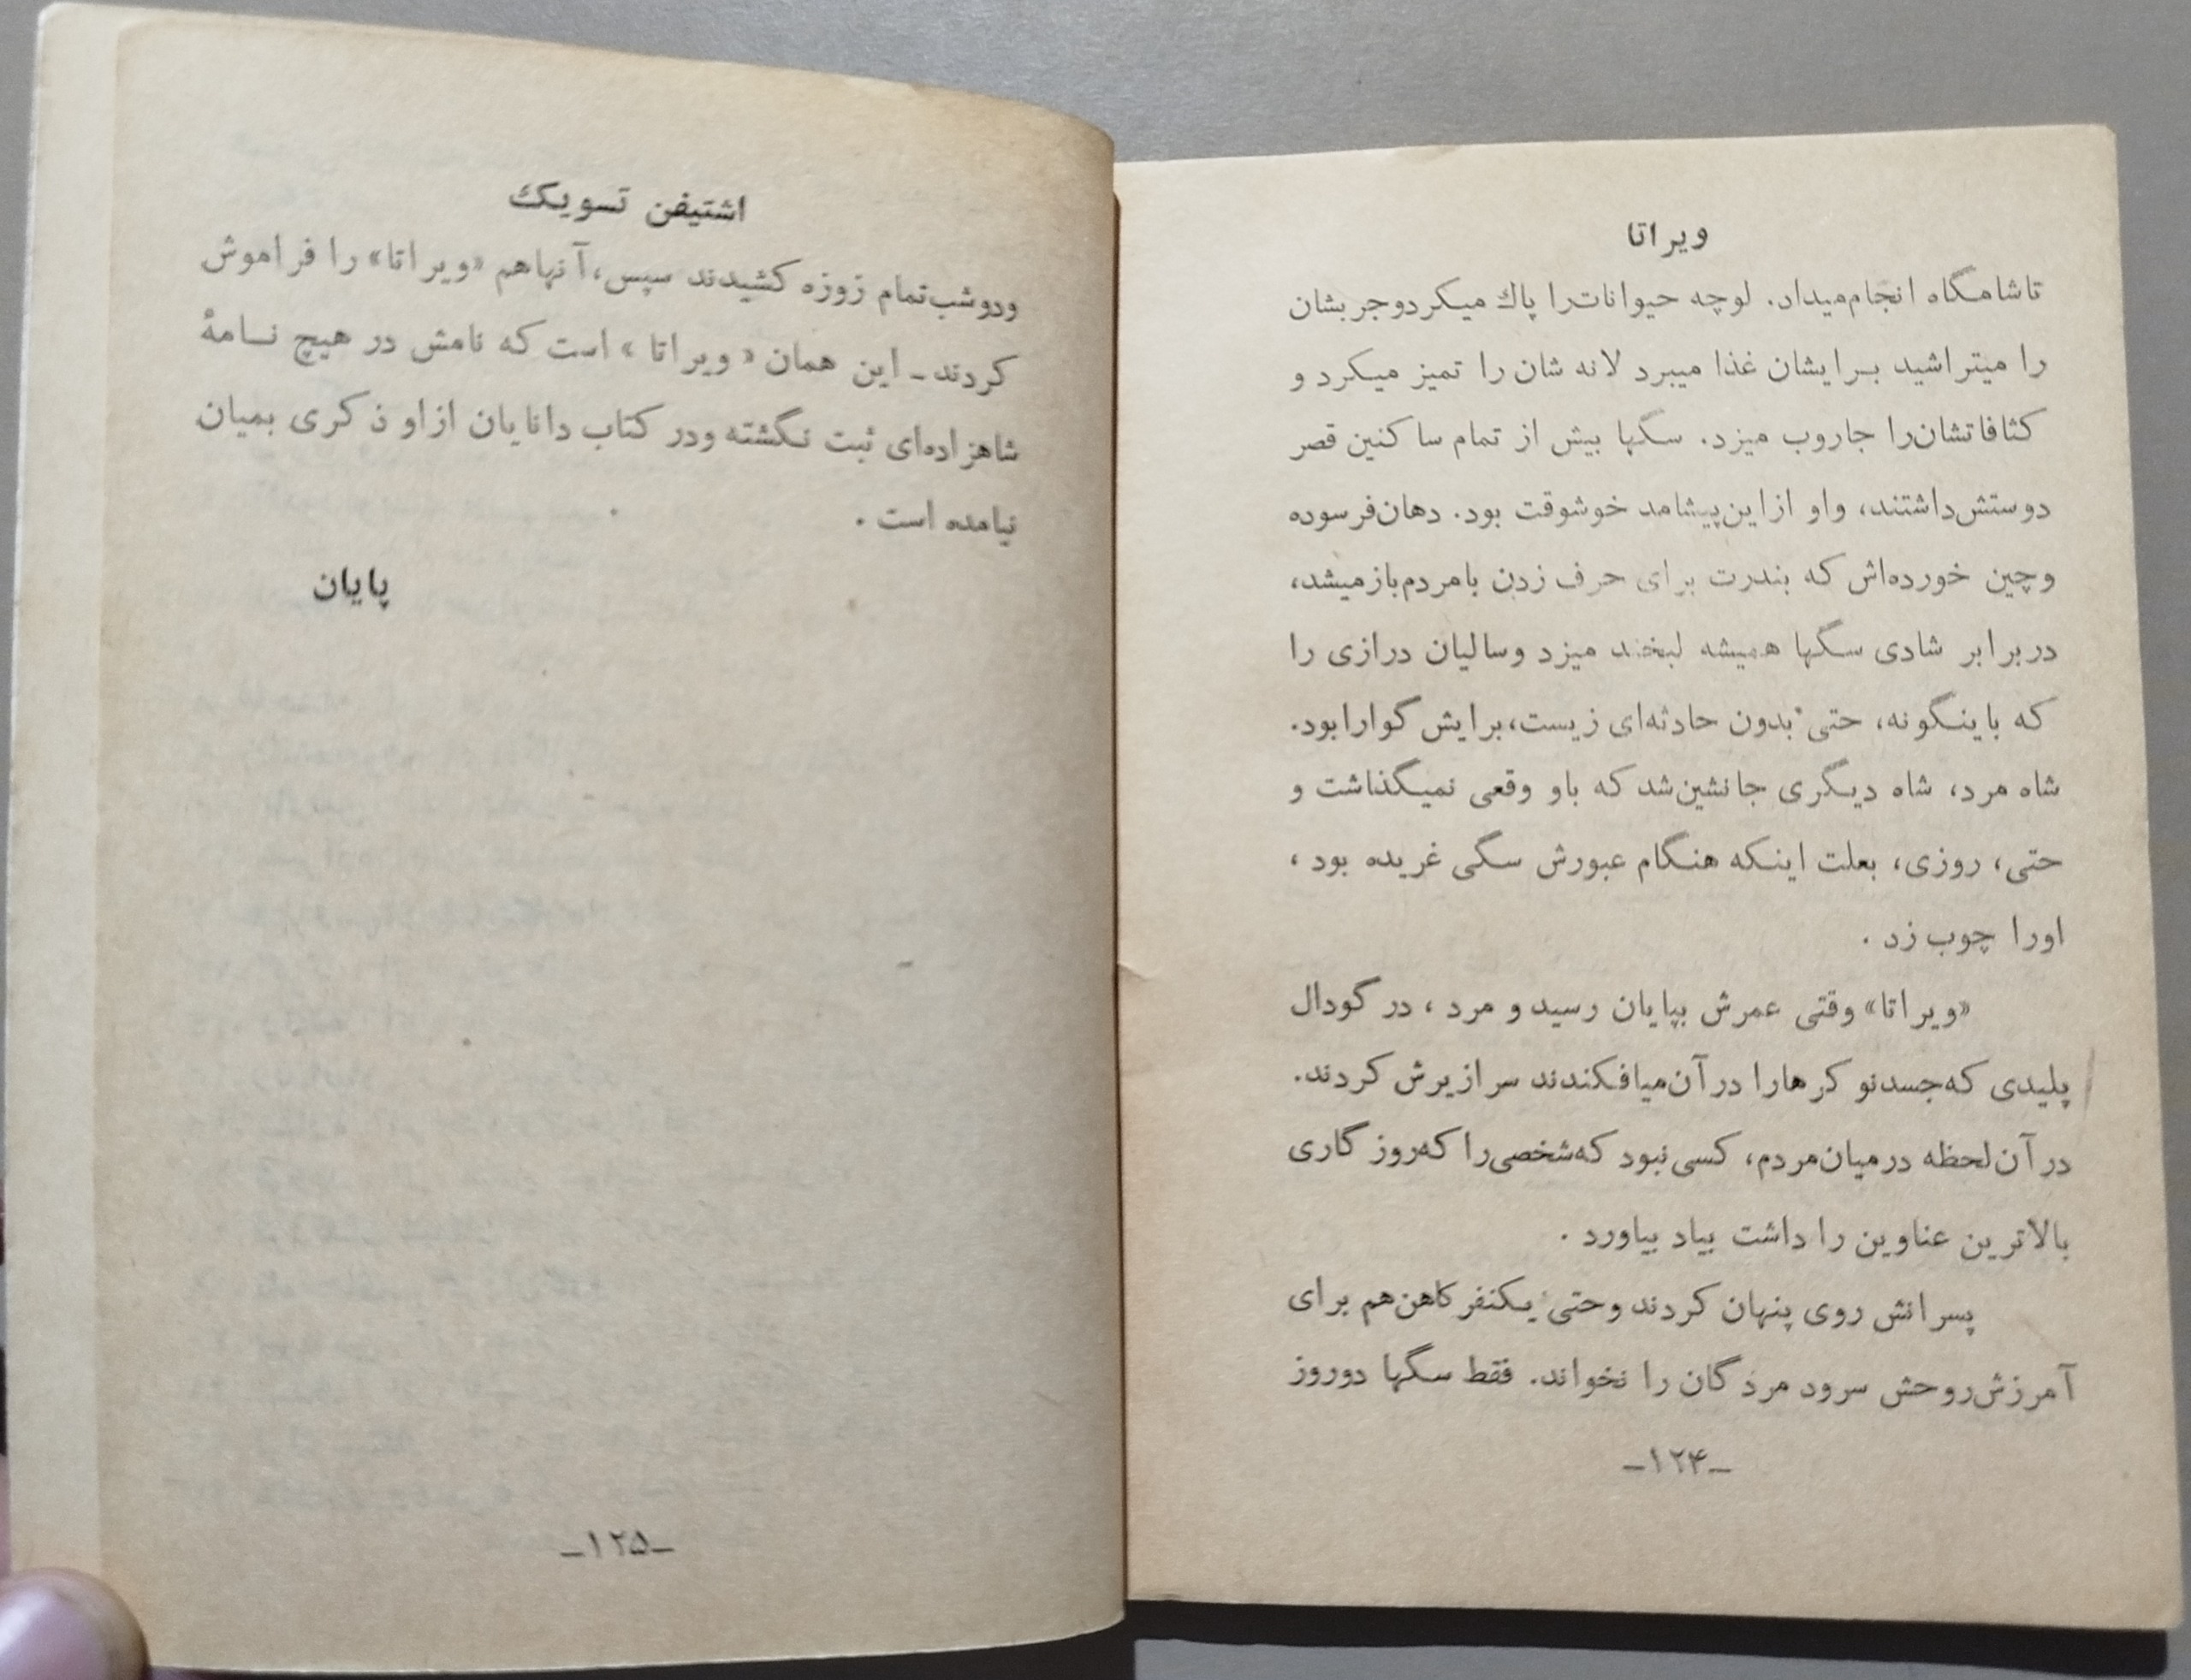 ویراتا
تاشامگاه انجام‌میداد. لوچه حیوانات‌را پاك میکردوجربشان
را میتراشید برایشان غذا میبرد لانه شان را تمیز میکرد و
کثافاتشان‌را جاروب میزد. سگها بیش از تمام ساکنین قصر
دوستش‌داشتند، واو ازاین‌پیشامد خوشوقت بود. دهان‌فرسوده
وچین خورده‌اش که بندرت برای حرف زدن بامردم‌بازمیشد،
دربرابر شادی سگها همیشه لبخند میزد وسالیان درازی را
که باینگونه، حتی بدون حادثه‌ای زیست،برایش گوارابود.
شاه مرد، شاه دیگری جانشین‌شد که باو وقعی نمیگذاشت و
حتی، روزی، بعلت اینکه هنگام عبورش سگی غریده بود ،
اورا چوب زد .
«ویراتا» وقتی عمرش بپایان رسید و مرد ، در گودال
پلیدی که‌جسدنوکرهارا درآن‌میافکندند سرازیرش کردند.
درآن‌لحظه درمیان‌مردم، کسی‌نبود که‌شخصی‌را که‌روزگاری
بالاترین عناوین را داشت بیاد بیاورد .
پسرانش روی پنهان کردند وحتی یکنفرکاهن‌هم برای
آمرزش‌روحش سرود مردگان را نخواند. فقط سگها دوروز
ـ۱۲۴ـ
اشتیفن تسویگ
ودوشب‌تمام زوزه کشیدند سپس،آنهاهم «ویراتا» را فراموش
کردند ـ این همان « ویراتا » است که نامش در هیچ نـامهٔ
شاهزاده‌ای ثبت نگشته ودر کتاب دانایان ازاو ذکری بمیان
نیامده است .
پایان
ـ۱۲۵ـ